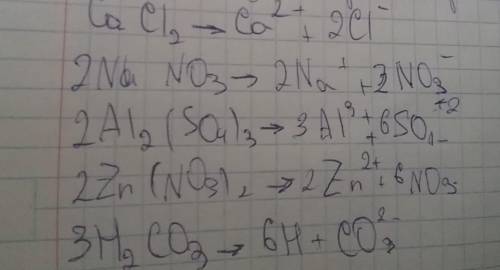 CaCl₂ → Ca²⁺ + 2Cl⁻
2Na NO₃ → 2Na⁺ + 2NO₃⁻
2Al₂(SO₄)₃ → 3Al³⁺ + 6SO₄⁻²
2Zn(NO₃)₂ → 2Zn²⁺ + 6NO₃
3H₂CO₃ → 6H + CO₃²⁻